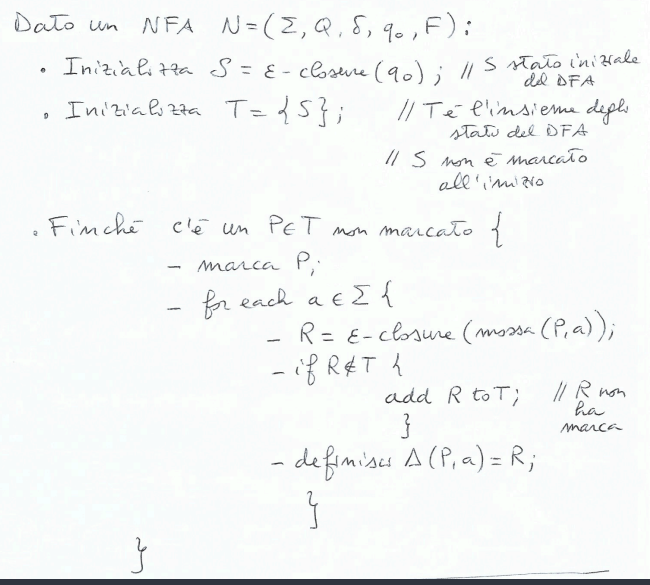 Dato un NFA N=(Σ, Q, δ, q₀, F):
• Inizializza S = ε-closure(q₀); // S stato iniziale
del DFA
• Inizializza T = {S}; // T è l'insieme degli
stati del DFA
// S non è marcato
all'inizio
• Finché c'è un P∈T non marcato {
– marca P;
– for each a ∈ Σ {
– R = ε-closure(mossa(P,a));
– if R∉T {
add R to T; // R non
ha
marca
}
– definisci Δ(P,a) = R;
}
}